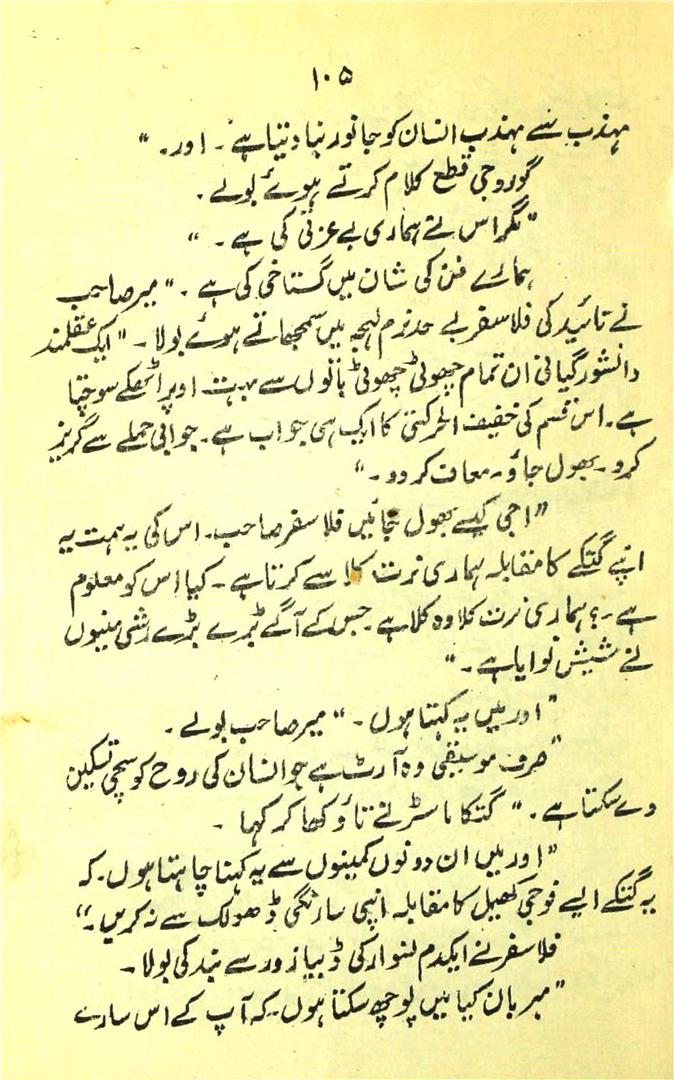 ۱۰۵
مہذب سے مہذب انسان کو جانور بنا دیتا ہے ۔ اور ۔ "
گوروجی قطع کلام کرتے ہوئے بولے ۔
" مگر اس نے ہماری بے عزتی کی ہے ۔ "
ہمارے فن کی شان میں گستاخی کی ہے ۔ " میر صاحب
نے تائید کی فلاسفر بے حد نرم لہجہ میں سمجھاتے ہوئے بولا ۔ " ایک عقلمند
دانشور گیانی ان تمام چھوٹی چھوٹی باتوں سے بہت اوپر اٹھکے سوچتا
ہے ۔ اس قسم کی خفیف الحرکتی کا ایک ہی جواب ہے ۔ جوابی حملے سے گریز
کرو ۔ بھول جاؤ ۔ معاف کر دو ۔ "
" اجی کیسے بھول جائیں فلاسفر صاحب ۔ اس کی یہ ہمت یہ
اپنے گتکے کا مقابلہ ہماری نرت کلا سے کرتا ہے ۔ کیا اس کو معلوم
ہے ۔ ؟ ہماری نرت کلا وہ کلا ہے ۔ جس کے آگے بڑے بڑے رشی منیوں
نے شیش نوایا ہے ۔ "
" اور میں یہ کہتا ہوں ۔ " میر صاحب بولے ۔
" صرف موسیقی وہ آرٹ ہے جو انسان کی روح کو سچی تسکین
دے سکتا ہے ۔ " گتکا ماسٹر نے تاؤ کھا کر کہا ۔
" اور میں ان دونوں کمینوں سے یہ کہنا چاہتا ہوں ۔ کہ
یہ گتکے ایسے فوجی کھیل کا مقابلہ اپنی سارنگی ڈھولک سے نہ کریں ۔ "
فلاسفر نے ایکدم نسوار کی ڈبیا زور سے بند کی بولا ۔
" مہربان کیا میں پوچھ سکتا ہوں ۔ کہ آپ کے اس سارے